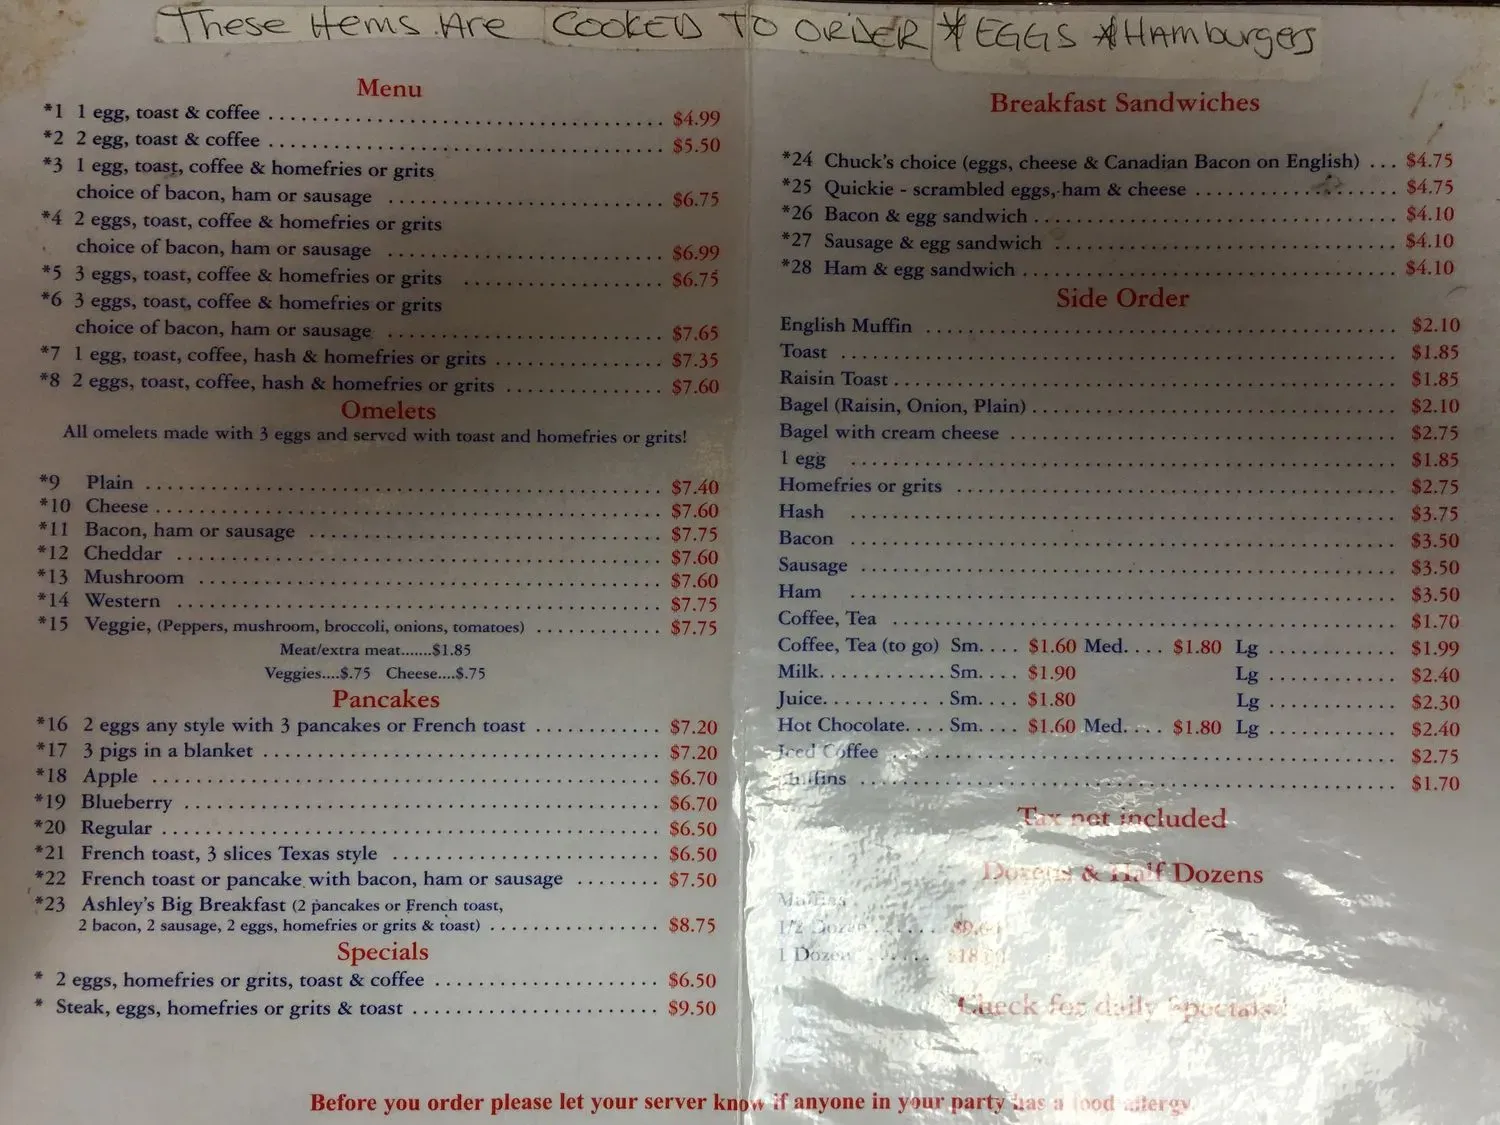 These Items Are COOKED TO ORDER * EGGS * HAmburgers
Menu
*1 1 egg, toast & coffee $4.99
*2 2 egg, toast & coffee $5.50
*3 1 egg, toast, coffee & homefries or grits
choice of bacon, ham or sausage $6.75
*4 2 eggs, toast, coffee & homefries or grits
choice of bacon, ham or sausage $6.99
*5 3 eggs, toast, coffee & homefries or grits $6.75
*6 3 eggs, toast, coffee & homefries or grits
choice of bacon, ham or sausage $7.65
*7 1 egg, toast, coffee, hash & homefries or grits $7.35
*8 2 eggs, toast, coffee, hash & homefries or grits $7.60
Omelets
All omelets made with 3 eggs and served with toast and homefries or grits!
*9 Plain $7.40
*10 Cheese $7.60
*11 Bacon, ham or sausage $7.75
*12 Cheddar $7.60
*13 Mushroom $7.60
*14 Western $7.75
*15 Veggie, (Peppers, mushroom, broccoli, onions, tomatoes) $7.75
Meat/extra meat.......$1.85
Veggies....$.75 Cheese....$.75
Pancakes
*16 2 eggs any style with 3 pancakes or French toast $7.20
*17 3 pigs in a blanket $7.20
*18 Apple $6.70
*19 Blueberry $6.70
*20 Regular $6.50
*21 French toast, 3 slices Texas style $6.50
*22 French toast or pancake with bacon, ham or sausage $7.50
*23 Ashley's Big Breakfast (2 pancakes or French toast,
2 bacon, 2 sausage, 2 eggs, homefries or grits & toast) $8.75
Specials
* 2 eggs, homefries or grits, toast & coffee $6.50
* Steak, eggs, homefries or grits & toast $9.50
Breakfast Sandwiches
*24 Chuck's choice (eggs, cheese & Canadian Bacon on English) $4.75
*25 Quickie - scrambled eggs, ham & cheese $4.75
*26 Bacon & egg sandwich $4.10
*27 Sausage & egg sandwich $4.10
*28 Ham & egg sandwich $4.10
Side Order
English Muffin $2.10
Toast $1.85
Raisin Toast $1.85
Bagel (Raisin, Onion, Plain) $2.10
Bagel with cream cheese $2.75
1 egg $1.85
Homefries or grits $2.75
Hash $3.75
Bacon $3.50
Sausage $3.50
Ham $3.50
Coffee, Tea $1.70
Coffee, Tea (to go) Sm. $1.60 Med. $1.80 Lg $1.99
Milk Sm. $1.90 Lg $2.40
Juice Sm. $1.80 Lg $2.30
Hot Chocolate Sm. $1.60 Med. $1.80 Lg $2.40
Iced Coffee $2.75
Muffins $1.70
Tax not included
Dozens & Half Dozens
Muffins
1/2 Dozen
1 Dozen
Check for daily Specials!
Before you order please let your server know if anyone in your party has a food allergy.